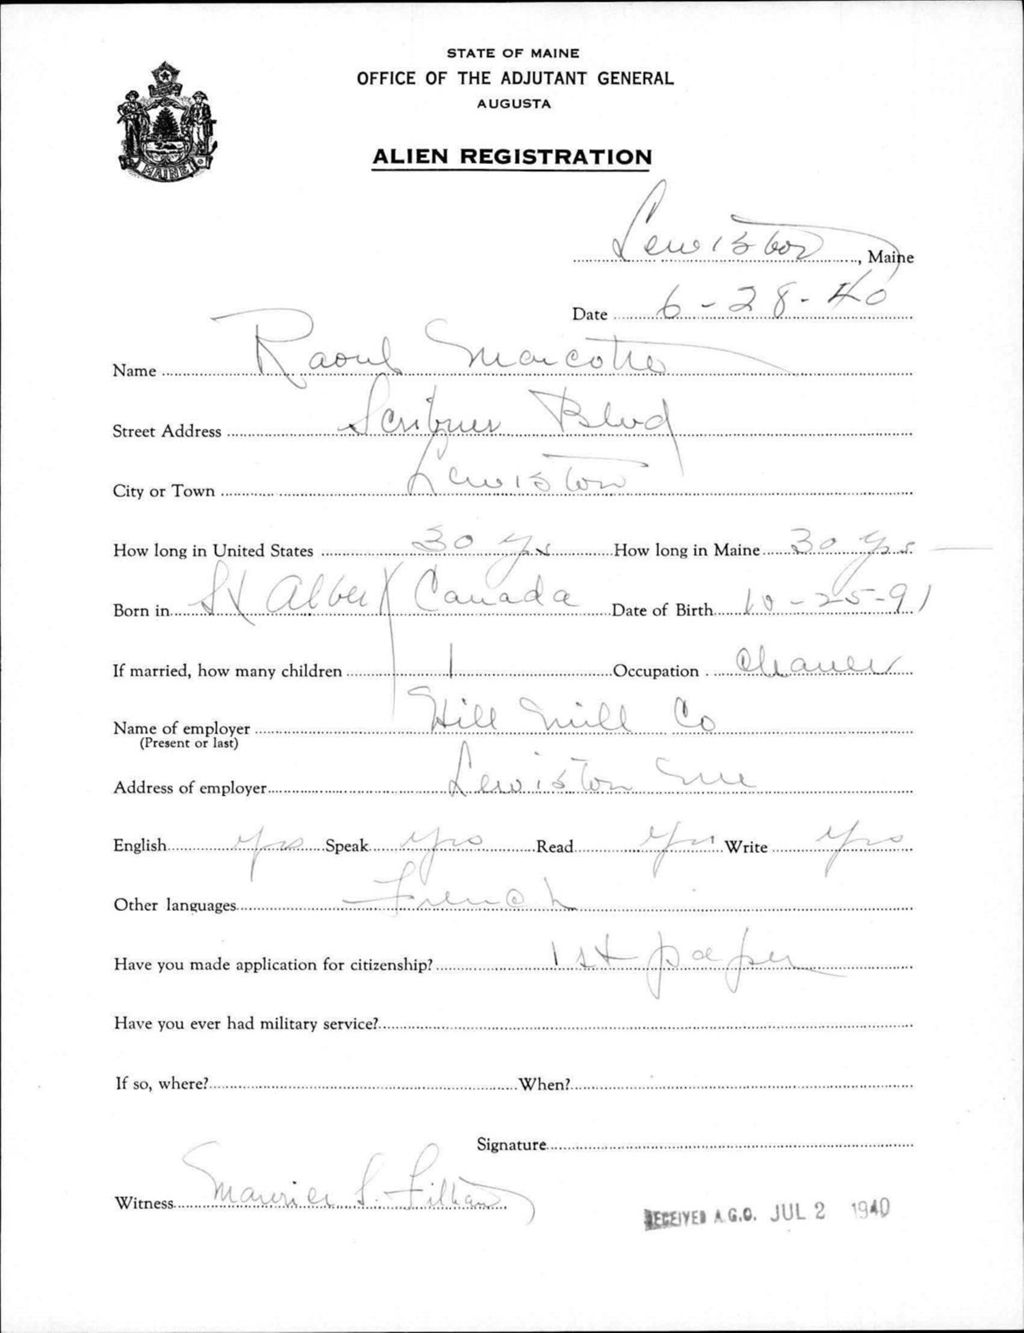 STATE OF MAINE
OFFICE OF THE ADJUTANT GENERAL
AUGUSTA
ALIEN REGISTRATION
MAINE
Lewiston, Maine
Date 6-28-40
Name Raoul Marcotte
Street Address Scribner Blvd
City or Town Lewiston
How long in United States 30 yrs How long in Maine 30 yrs
Born in St Albert Canada Date of Birth 10-25-91
If married, how many children 1 Occupation
Name of employer Hill Mill Co
(Present or last)
Address of employer Lewiston Me
English yes Speak yes Read yes Write yes
Other languages French
Have you made application for citizenship? 1st paper
Have you ever had military service?
If so, where? When?
Signature
Witness Maurice
RECEIVED A.G.O. JUL 2 1940